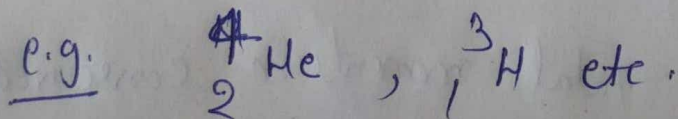 e.g. ⁴₂He , ₁³H etc.